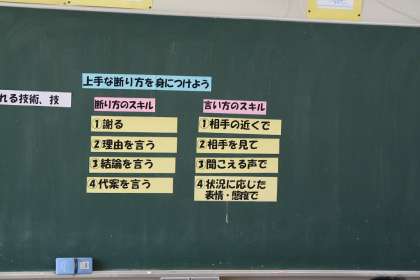 れる技術、技
上手な断り方を身につけよう
断り方のスキル
1 謝る
2 理由を言う
3 結論を言う
4 代案を言う
言い方のスキル
1 相手の近くで
2 相手を見て
3 聞こえる声で
4 状況に応じた
表情・態度で